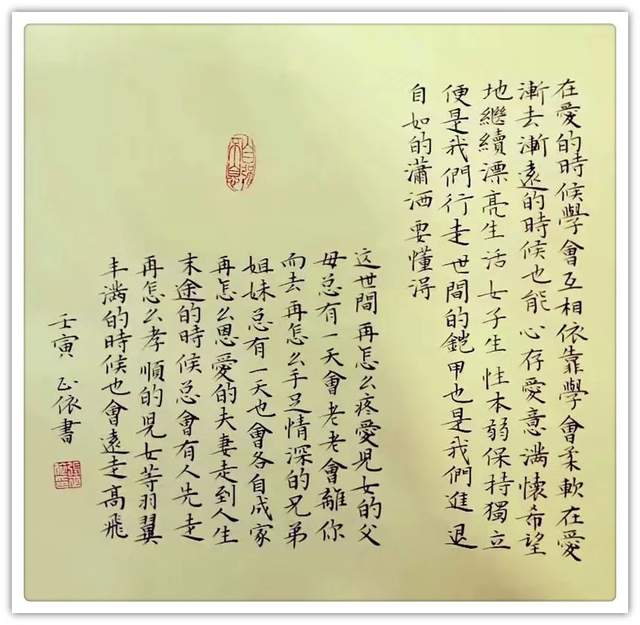 在愛的時候學會互相依靠學會柔軟在愛
漸去漸遠的時候也能心存愛意滿懷希望
地繼續漂亮生活女子生性本弱保持獨立
便是我們行走世間的鎧甲也是我們進退
自如的瀟洒要懂得
自強不息
这世間再怎么疼愛兒女的父
母总有一天會老老會離你
而去再怎么手足情深的兄弟
姐妹总有一天也會各自成家
再怎么恩愛的夫妻走到人生
末途的時候总會有人先走
再怎么孝順的兒女等羽翼
丰满的時候也會遠走高飛
壬寅 正依書